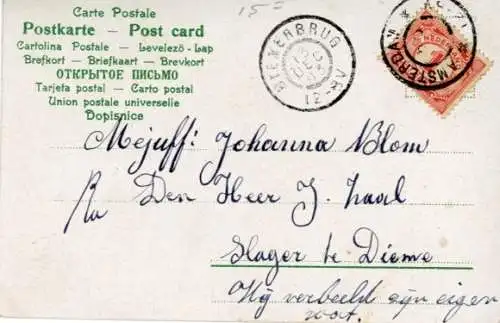 15=
Carte Postale
Postkarte – Post card
Cartolina Postale – Levelező-Lap
Brefkort – Briefkaart – Brevkort
ОТКРЫТОЕ ПИСЬМО
Tarjeta postal – Carto postal
Union postale universelle
Dopisnice
DIEMERBRUG
AMSTERDAM
NEDER
Mejuff: Johanna Blom
Den Heer J. Zaal
Slager te Dieme
Hij verbeeld zijn eigen
wat.